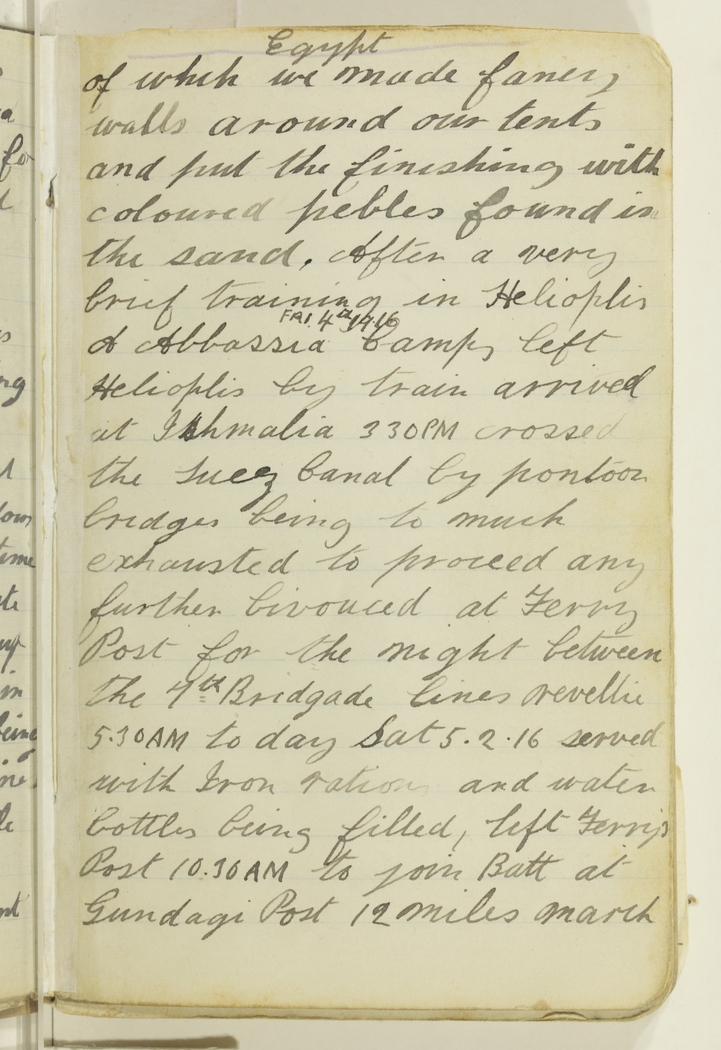 Egypt
of which we made fancy
walls around our tents
and put the finishing with
coloured pebles found in
the sand. After a very
brief training in Helioplis
FRI. 4th 1916
& Abbassia Camps left
Helioplis by train arrived
at Ishmalia 330PM crossed
the Suez Canal by pontoon
bridges being to much
exhausted to proceed any
further bivouced at Ferry
Post for the night between
the 4th Bridgade lines revellie
5.30AM to day Sat 5.2.16 served
with Iron rations and water
bottles being filled, left Ferry
Post 10.30AM to join Batt at
Gundagi Post 12 miles march